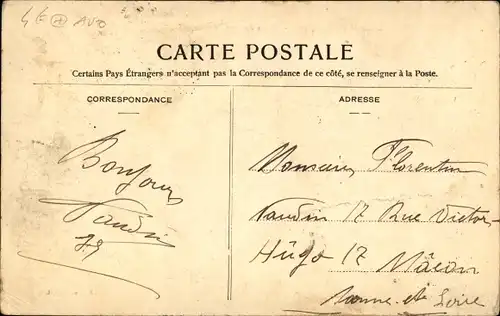 CARTE POSTALE
Certains Pays Étrangers n'acceptant pas la Correspondance de ce côté, se renseigner à la Poste.
CORRESPONDANCE
Bonjour
Vaudin
ADRESSE
Monsieur Florentin
Vaudin 17 Rue Victor
Hugo 17 Mâcon
Saone et Loire